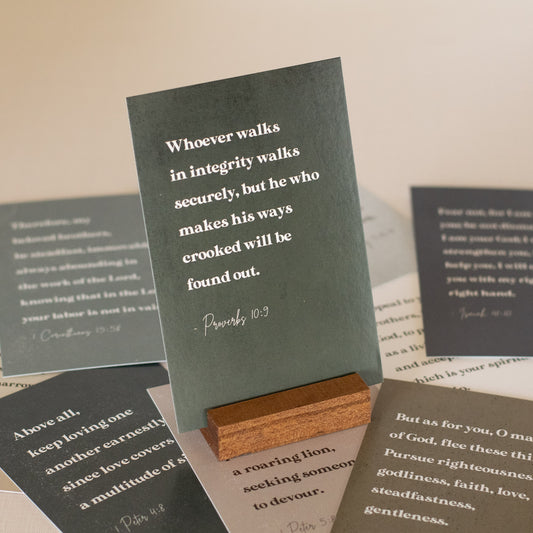 Whoever walks
in integrity walks
securely, but he who
makes his ways
crooked will be
found out.
- Proverbs 10:9
Therefore, my
beloved brothers,
be steadfast, immovable
always abounding in
the work of the Lord,
knowing that in the Lo
your labor is not in vain
1 Corinthians 15:58
Fear not, for I am
you; be not dismay
I am your God; I
strengthen you,
help you, I will
you with my rig
right hand.
- Isaiah 41:10
ppeal to
brothers,
God, to
as a livi
and accep
which is your spiri
Above all,
keep loving one
another earnestly
since love covers
a multitude of s
1 Peter 4:8
a roaring lion,
seeking someon
to devour.
1 Peter 5:8
But as for you, O ma
of God, flee these thi
Pursue righteousness
godliness, faith, love,
steadfastness,
gentleness.